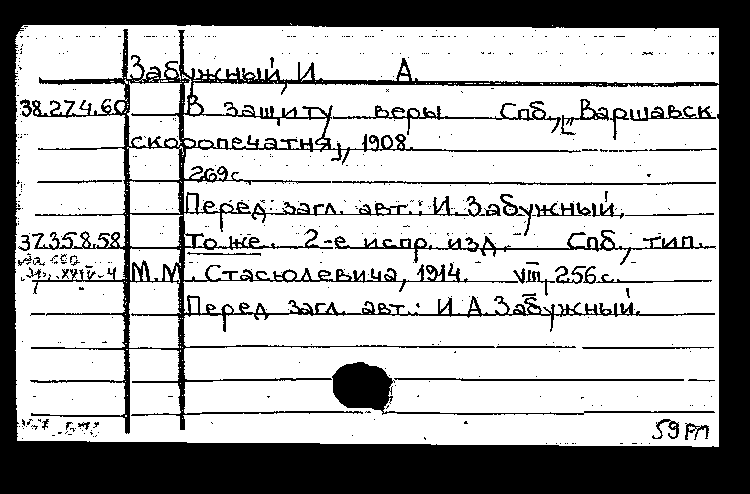 Забужный, И. А.
38.27.4.60 В защиту веры. Спб., [Варшавск.
скоропечатня], 1908.
269с.
Перед загл. авт.: И. Забужный.
37.35.8.58 То же. 2-е испр. изд. Спб., тип.
М.М. Стасюлевича, 1914. VIII, 256 с.
Перед загл. авт.: И.А. Забужный.
59 РП